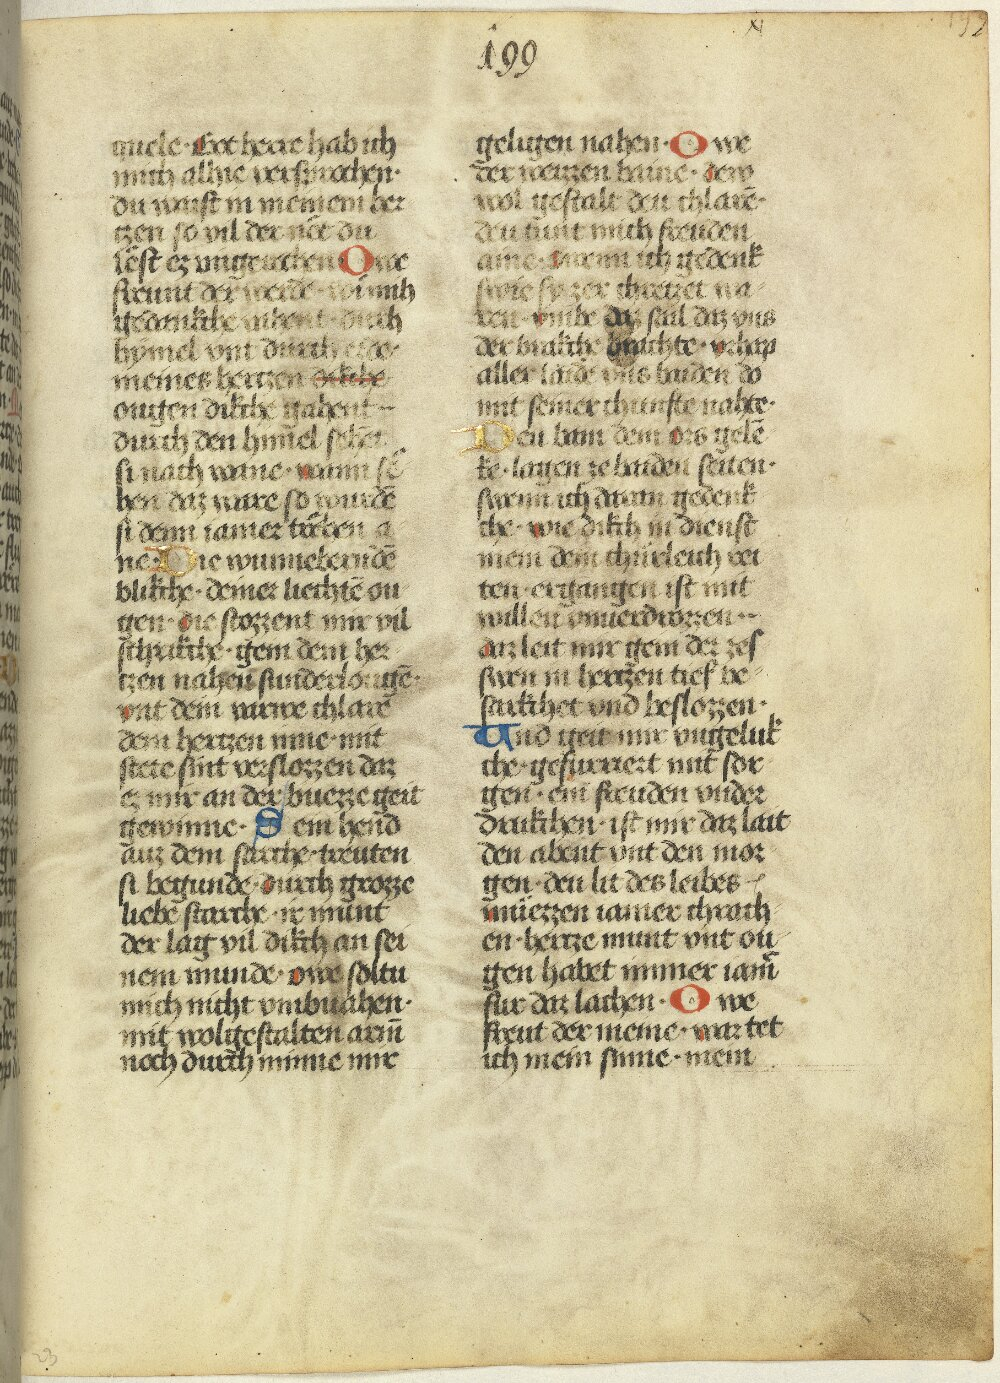 199
quele. Got herre hab ich
mich alhie versprochen.
du warst in meinem her
tzen so vil der nœt du
lest ez ungerochen O we
freunt der werde. wi mih
gedankche
hymel vnt durch erde.
meines hertzen dikche
ougen dikche gahent
durch den himel sehen
si nach wane. wann sē
hen daz ware so wurdē
si denn iamer træhen a
ne. Die wunneberndē
blikche. deiner liechtē ou
gen. die stozzent mir vil
schrikche. gein dem her
tzen nahen sunderlougē.
vnt dein varwe chlare
dem hertzen mine. mit
stete sint verslozzen daz
ez mir an der buezze geit
gewinne. Sein hend
auz dem sarche. treuten
si begunde. durch grozze
liebe starche. ir munt
der lag vil dikch an sei
nem munde. owe soltu
mich nicht vmbuahen.
mit wolgestalten armē
noch durch minne mir
geligen nahen. O we
der weizzen baine. dew
wol gestalt den chlarē.
den tuent mich freuden
aine. swenn ich gedenk
swie si zer chreuzet wa
ren. vmbe daz sail daz vns
der brakche brachte. vrhap
aller laide vns baiden do
mit seiner chunfte nahte.
Den bain dem ors gelē
ke. lagen ze baiden seiten.
swenn ich daran gedenk
che. wie dikch in dienst
mein dem churleich rei
ten. ergangen ist mit
willen vnuerdrozzen
daz leit mir gein der zes
swen in hertzen tief be
sarkchet vnd beslozzen.
Und geit mir vngeluk
che. gefurriert mit sor
gen. ein freuden vnder
drukchen. ist mir daz lait
den abent vnt den mor
gen. den lit des leibes
muezzen iamer chrach
en. hertze munt vnt ou
gen habet immer iamer
fur daz lachen. O we
freut der meine. wartet
ich mein sinne. mein
23